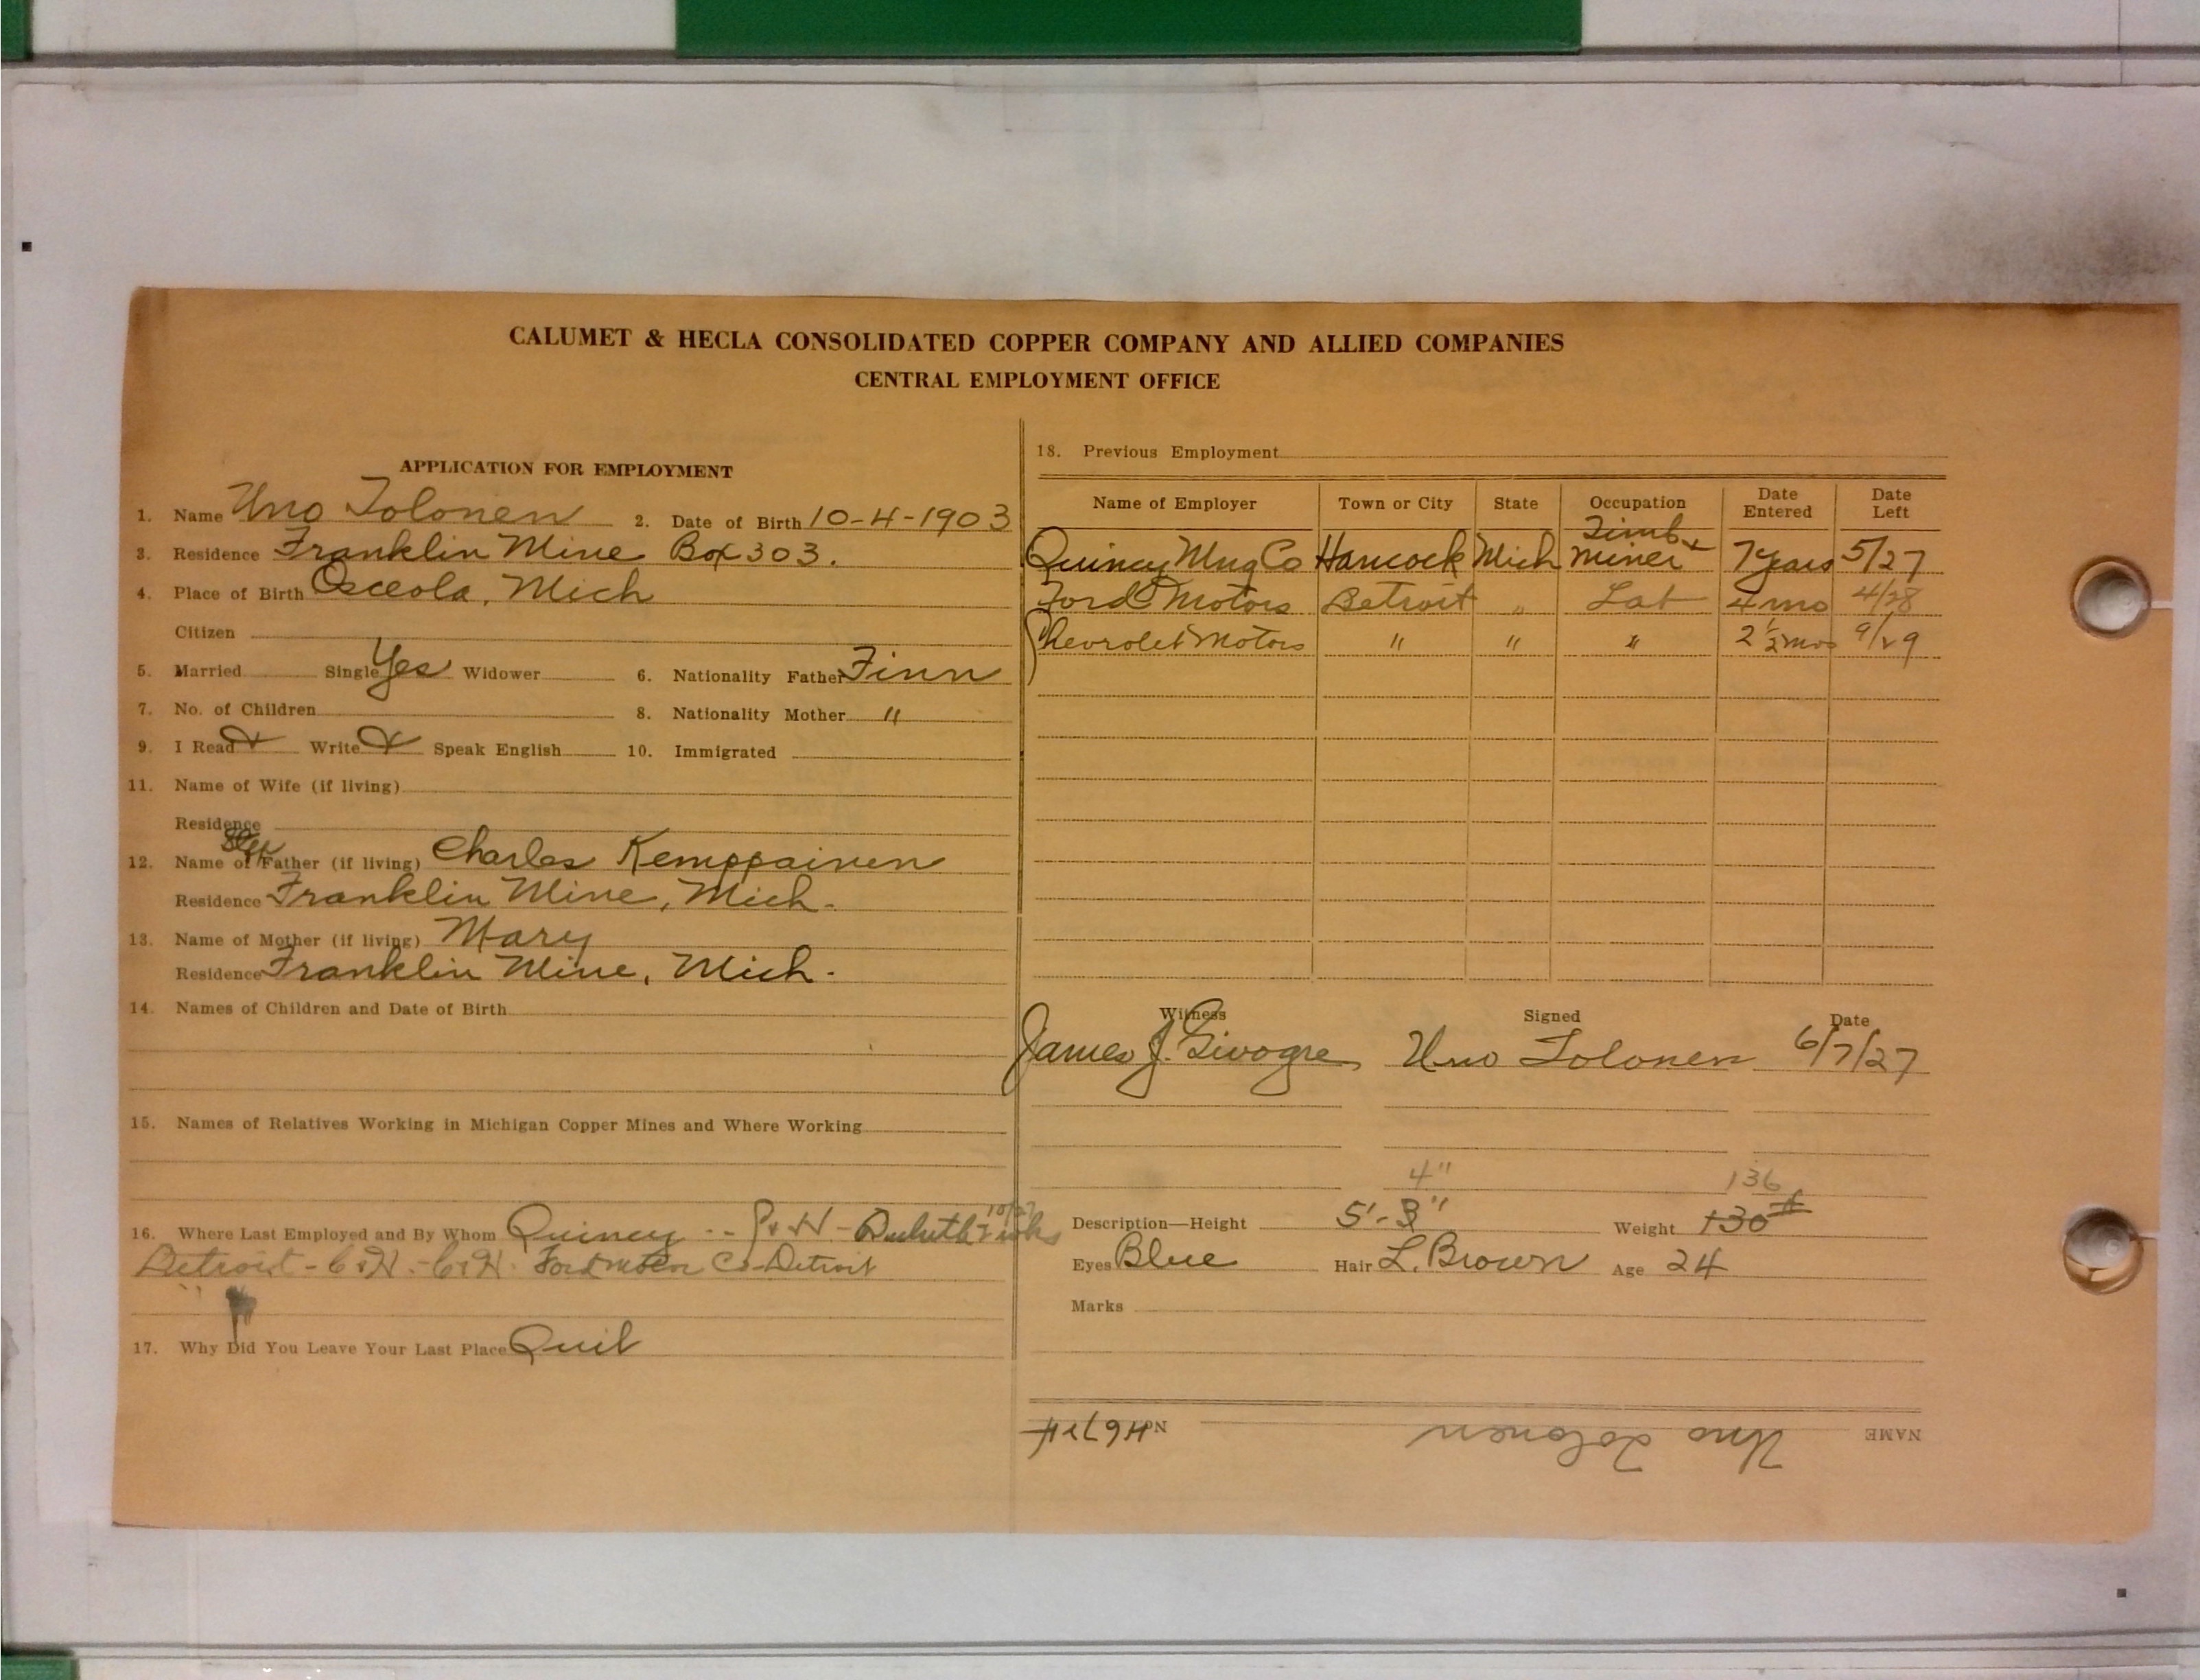 CALUMET & HECLA CONSOLIDATED COPPER COMPANY AND ALLIED COMPANIES
CENTRAL EMPLOYMENT OFFICE
APPLICATION FOR EMPLOYMENT
1. Name Uno Tolonen 2. Date of Birth 10-4-1903
3. Residence Franklin Mine Box 303.
4. Place of Birth Osceola, Mich
Citizen
5. Married Single Yes Widower 6. Nationality Father Finn
7. No. of Children 8. Nationality Mother "
9. I Read Write Speak English 10. Immigrated
11. Name of Wife (if living)
Residence
Step
12. Name of Father (if living) Charles Kemppainen
Residence Franklin Mine, Mich.
13. Name of Mother (if living) Mary
Residence Franklin Mine, Mich.
14. Names of Children and Date of Birth
15. Names of Relatives Working in Michigan Copper Mines and Where Working
16. Where Last Employed and By Whom Quincy -- - Duluth
Detroit - C&H. - C&H. Ford Motor Co-Detroit
17. Why Did You Leave Your Last Place Quit
18. Previous Employment
Name of Employer Town or City State Occupation Date Entered Date Left
Quincy Mng Co Hancock Mich Timb & Miner 7 years 5/27
Ford Motors Detroit " Lab 4 mo 4/28
Chevrolet Motors " " " 2 1/2 mos 9/29
Witness Signed Date
James J. Uno Tolonen 6/7/27
4" 136
Description—Height 5'-3" Weight 130#
Eyes Blue Hair L. Brown Age 24
Marks
NAME Uno Tolonen No.